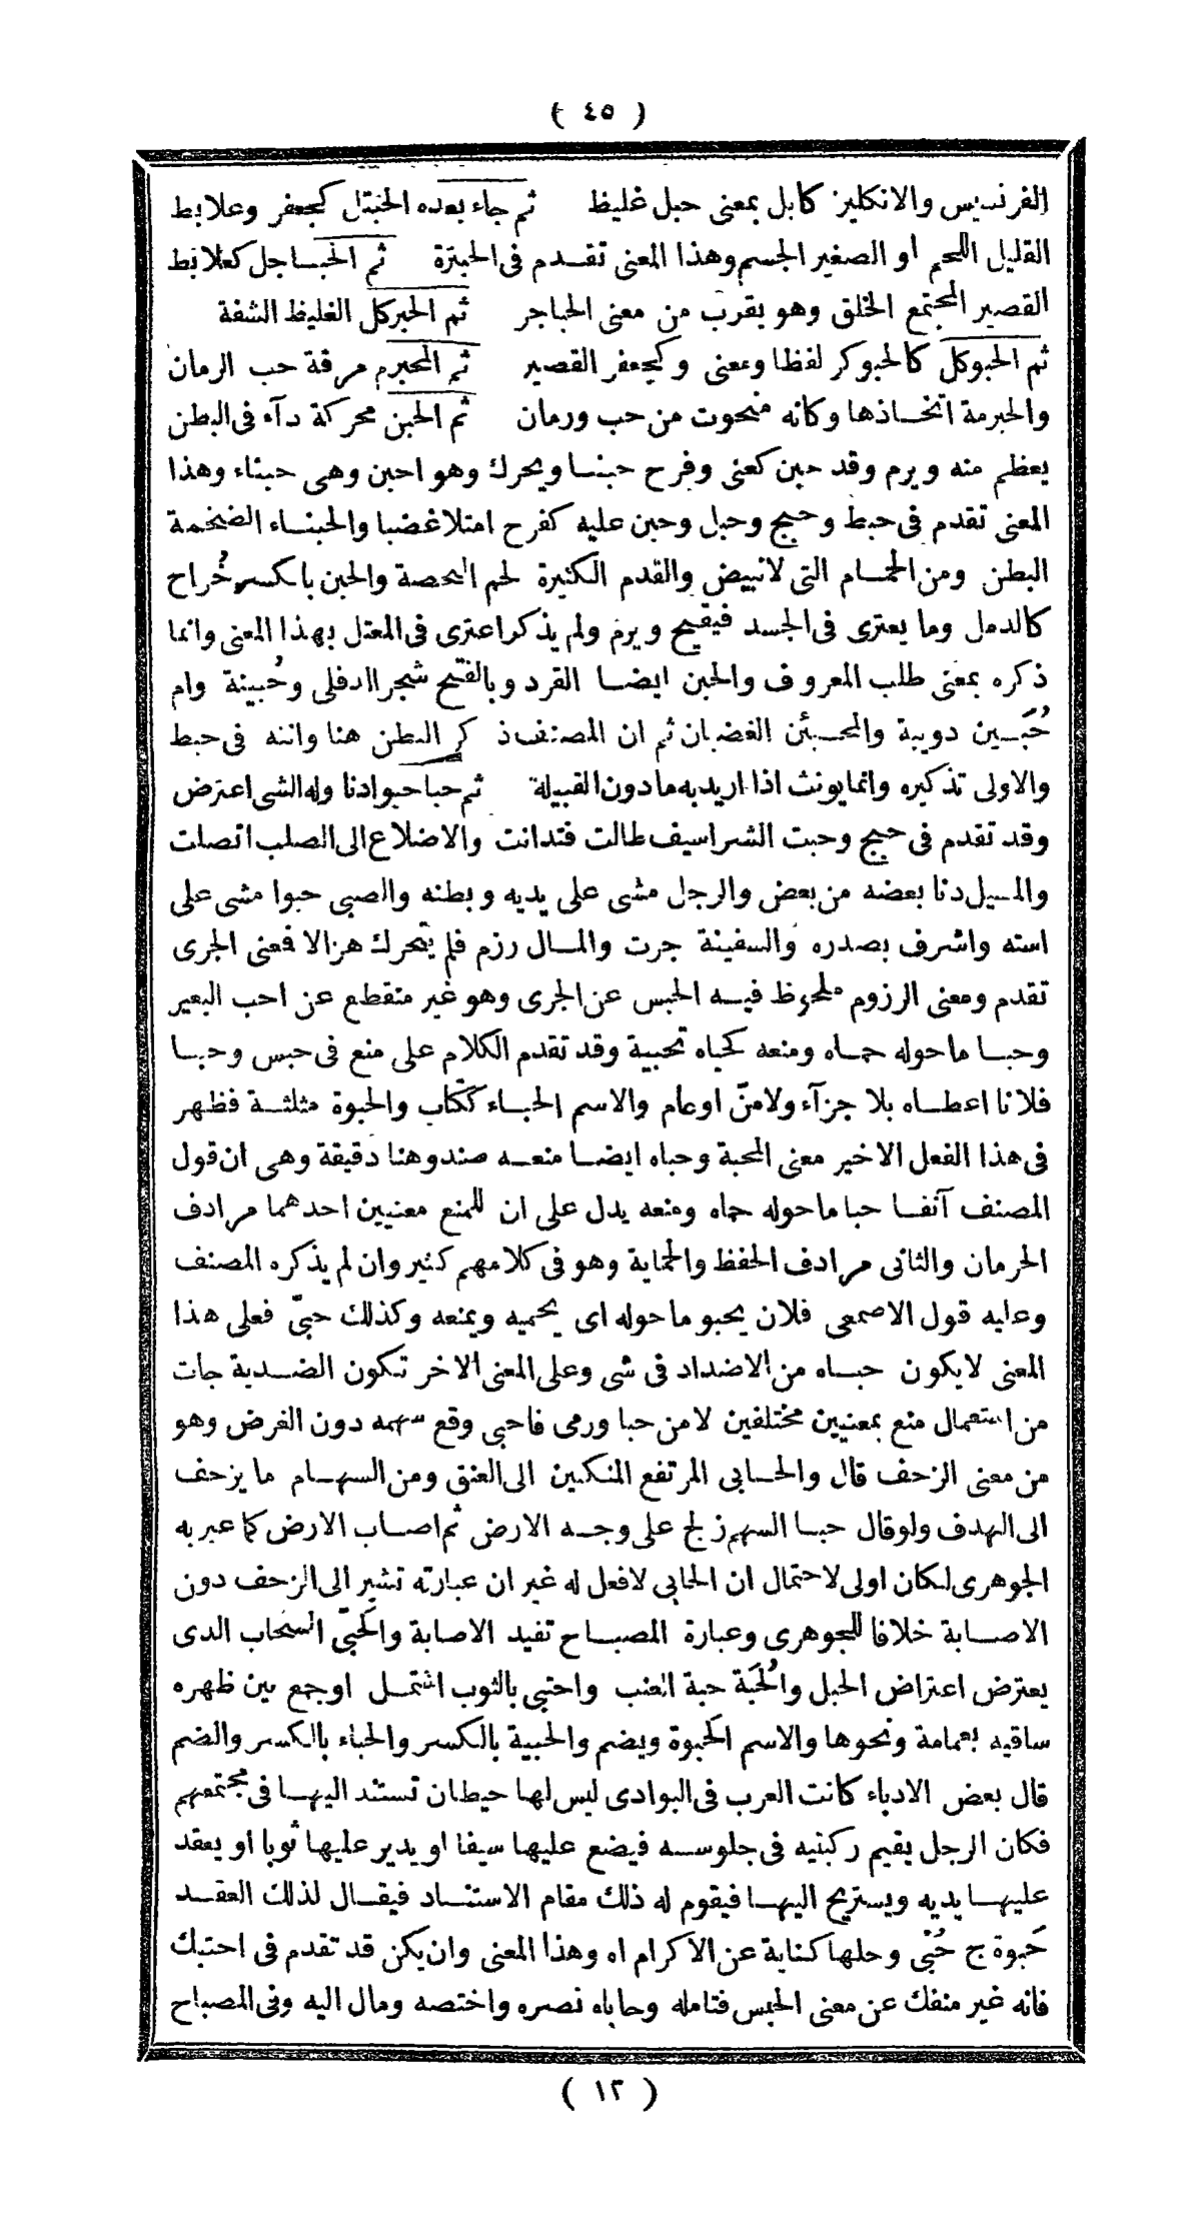 ( ٤٥ )
الفرنسيس والانكليز كابل بمعنى حبل غليظ ثم جاء بعده الحنبتل كجعفر وعلابط
القليل اللحم او الصغير الجسم وهذا المعنى تقدم فى الحبترة ثم الحباجل كعلابط
القصير المجتمع الخلق وهو يقرب من معنى الحباجر ثم الحبركل الغليظ الشفة
ثم الحبوكل كالحبوكر لفظا ومعنى وكجعفر القصير ثم المحبرم مرقة حب الرمان
والحبرمة اتخاذها وكانه منحوت من حب ورمان ثم الحبن محركة دآء فى البطن
يعظم منه ويرم وقد حبن كعنى وفرح حبنا ويحرك وهو احبن وهى حبناء وهذا
المعنى تقدم فى حبط وحبج وحبل وحبن عليه كفرح امتلا غضبا والحبناء الضخمة
البطن ومن الحمام التى لاتبيض والقدم الكثيرة لحم البخصة والحبن بالكسر خُراح
كالدمل وما يعترى فى الجسد فيقيح ويرم ولم يذكر اعترى فى المعتل بهذا المعنى وانما
ذكره بمعنى طلب المعروف والحبن ايضا القرد وبالفتح شجر الدفلى وحُبينة وام
حُبَين دويبة والمحبئن الغضبان ثم ان المصنف ذكر البطن هنا وانثه فى حبط
والاولى تذكيره وانما يونث اذا اريد به مادون القبيلة ثم حبا حبوا دنا وله الشى اعترض
وقد تقدم فى حبج وحبت الشراسيف طالت فتدانت والاضلاع الى الصلب اتصلت
والمسيل دنا بعضه من بعض والرجل مشى على يديه وبطنه والصبى حبوا مشى على
استه واشرف بصدره والسفينة جرت والمال رزم فلم يتحرك هزالا فمعنى الجرى
تقدم ومعنى الرزوم ملحوظ فيه الحبس عن الجرى وهو غير منقطع عن احب البعير
وحبا ماحوله حماه ومنعه كحباه تحبية وقد تقدم الكلام على منع فى حبس وحبا
فلانا اعطاه بلا جزآء ولامنّ اوعام والاسم الحباء ككتاب والحبوة مثلثة فظهر
فى هذا الفعل الاخير معنى المحبة وحباه ايضا منعه ضد وهنا دقيقة وهى ان قول
المصنف آنفا حبا ماحوله حماه ومنعه يدل على ان للمنع معنيين احدهما مرادف
الحرمان والثانى مرادف الحفظ والحماية وهو فى كلامهم كثير وان لم يذكره المصنف
وعليه قول الاصمعى فلان يحبو ماحوله اى يحميه ويمنعه وكذلك حبّى فعلى هذا
المعنى لايكون حباه من الاضداد فى شى وعلى المعنى الاخر تكون الضدية جات
من استعمال منع بمعنيين مختلفين لامن حبا ورمى فاحبى وقع سهمه دون الغرض وهو
من معنى الزحف قال والحابى المرتفع المنكبين الى العنق ومن السهام ما يزحف
الى الهدف ولوقال حبا السهم زلج على وجه الارض ثم اصاب الارض كما عبر به
الجوهرى لكان اولى لاحتمال ان الحابى لافعل له غير ان عبارته تشير الى الزحف دون
الاصابة خلافا للجوهرى وعبارة المصباح تفيد الاصابة والحَبىّ السحاب الذى
يعترض اعتراض الجبل والحُبَة حبة العنب واحتبى بالثوب اشتمل اوجمع بين ظهره
ساقيه بعمامة ونحوها والاسم الحَبوة ويضم والحبية بالكسر والحباء بالكسر والضم
قال بعض الادباء كانت العرب فى البوادى ليس لها حيطان تستند اليها فى مجتمعهم
فكان الرجل يقيم ركبتيه فى جلوسه فيضع عليها سيفا او يدير عليها ثوبا او يعقد
عليها يديه ويستريح اليها فيقوم له ذلك مقام الاستناد فيقال لذلك العقد
حَبوة ج حُبًى وحلها كناية عن الاكرام اه وهذا المعنى وان يكن قد تقدم فى احتبك
فانه غير منفك عن معنى الحبس فتامله وحاباه نصره واختصه ومال اليه وفى المصباح
( ١٢ )